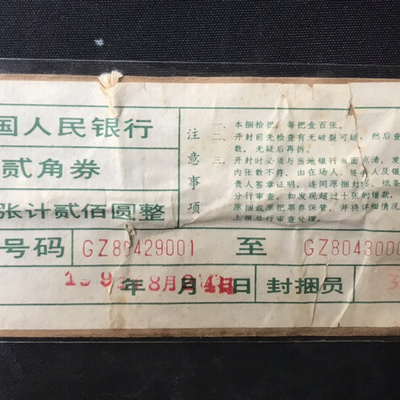 国人民银行
贰角券
张计贰佰圆整
注意事项
一、本捆拾把，每把壹百张。
二、开封前先检查有无破裂可疑，然后查
数，无疑后再拆。
三、开封时必须与当地银行当面点清，发
内张数不符，由在场人、经办人及银
贵人签章证明，连同原捆封签、纸条
分行审查。如发现超过十张的错款，
原捆或原把票券保管，并将详细情况
上级总行审查处理。
号码 GZ80429001 至 GZ8043000
年 8月 日 封捆员